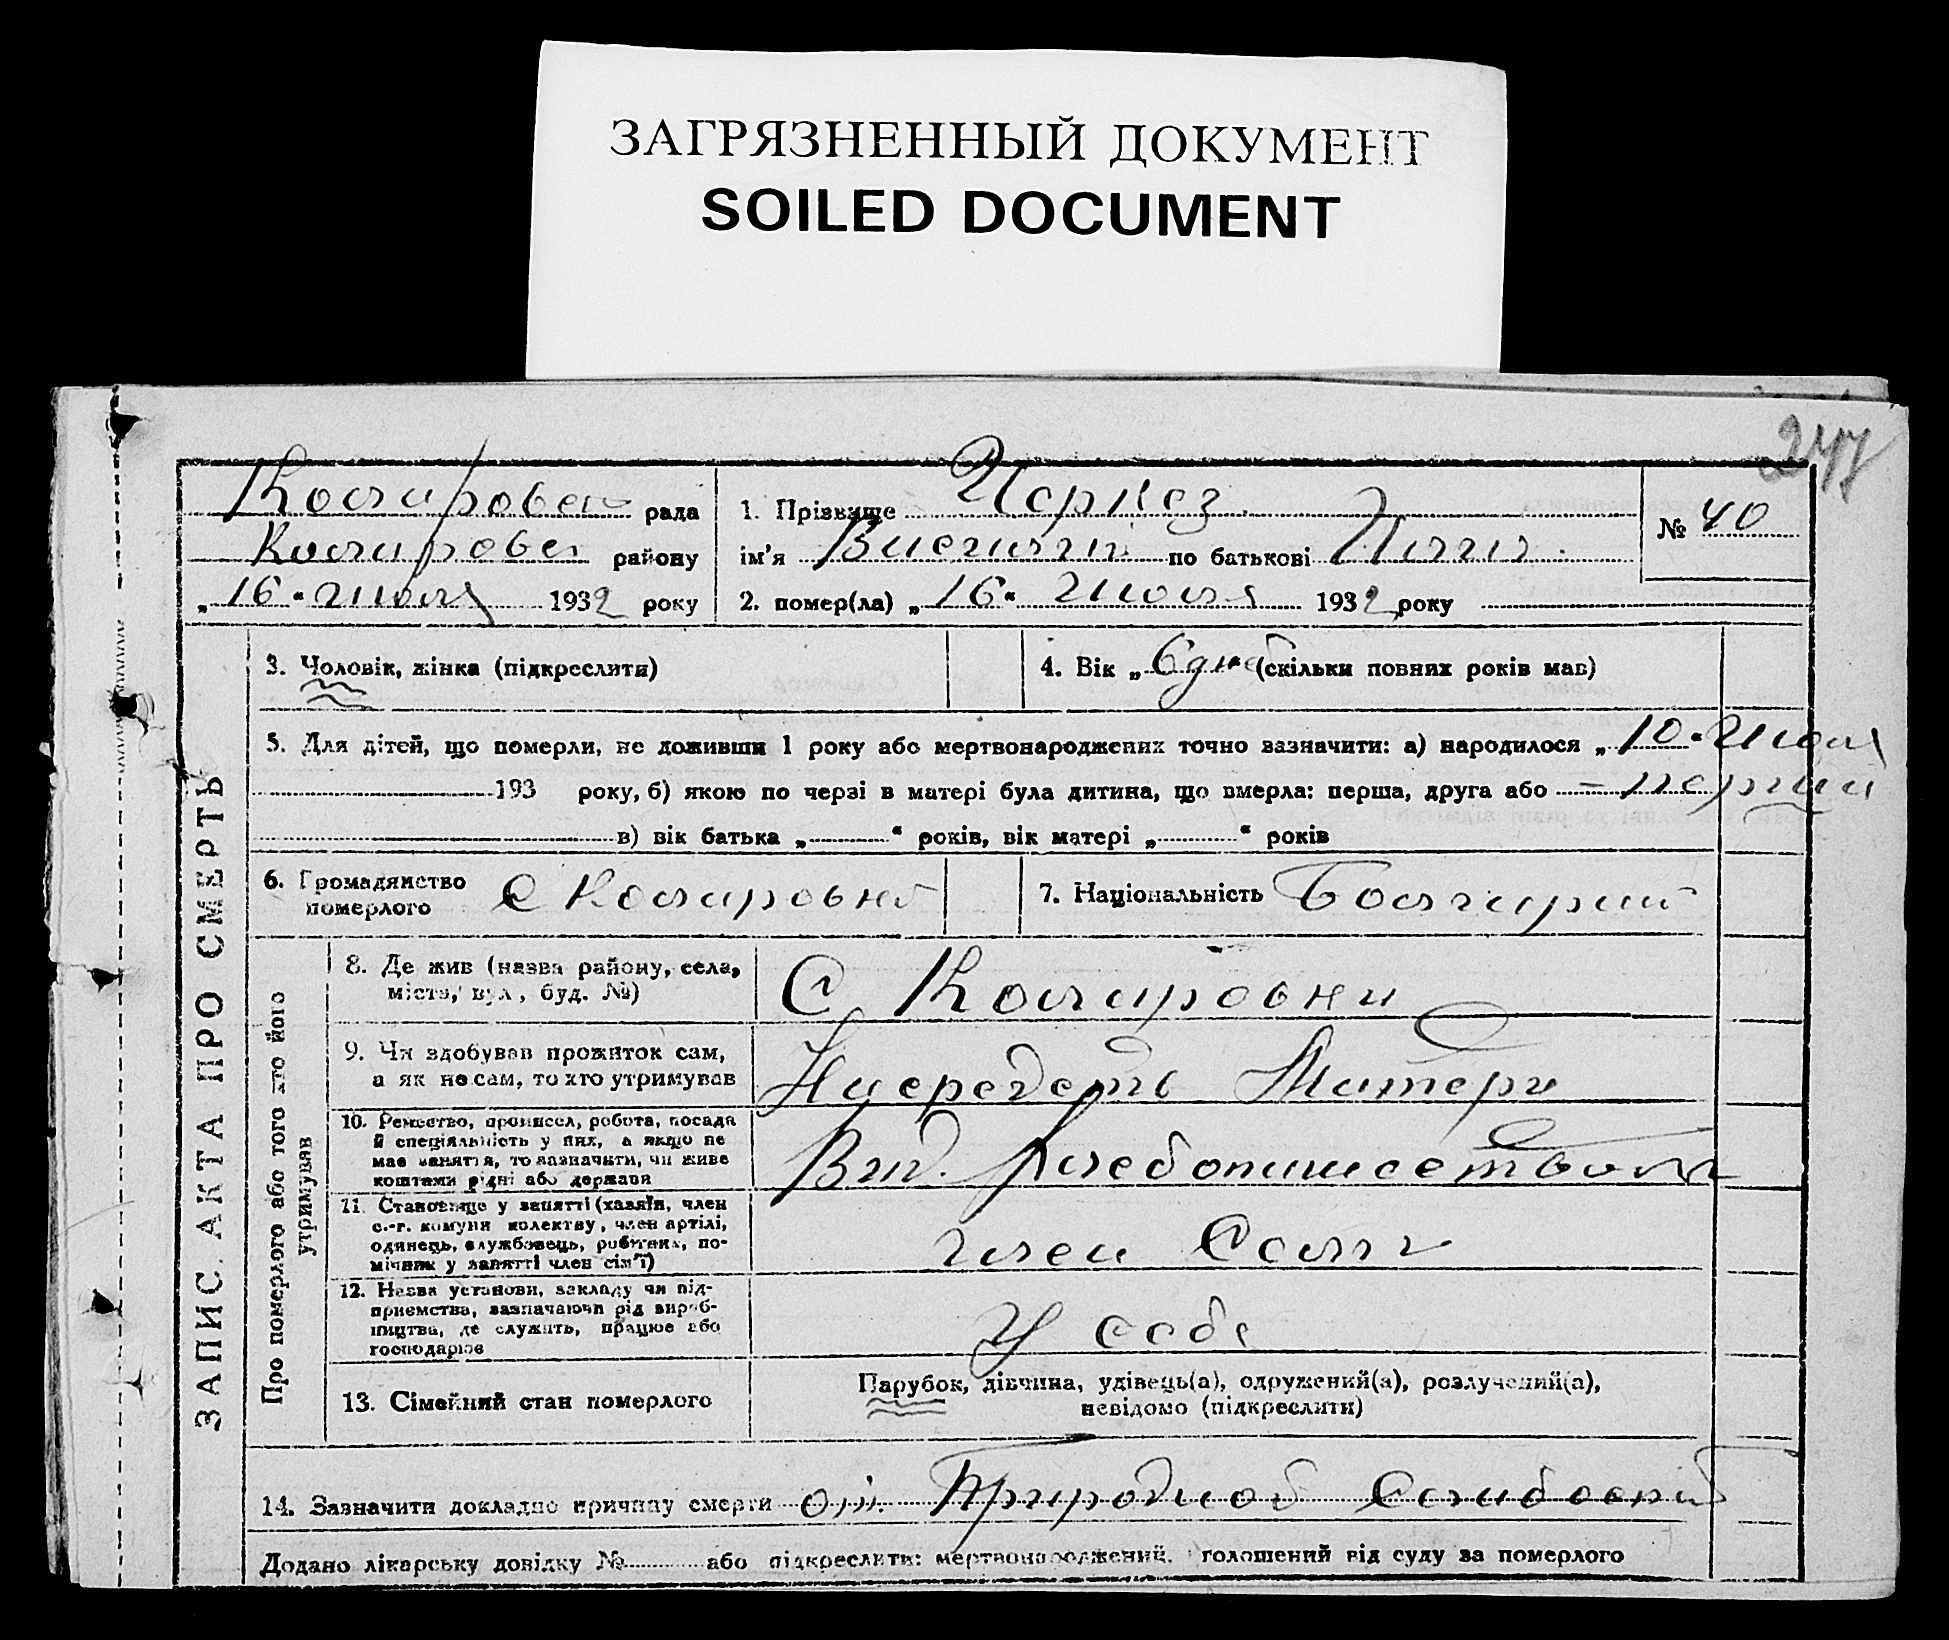 ЗАГРЯЗНЕННЫЙ ДОКУМЕНТ
SOILED DOCUMENT
247
рада
району
„16“ Июля 1932 року
1. Прізвище Черкез
ім’я по батькові
2. помер(ла) „16“ Июля 1932 року
№ 40
ЗАПИС АКТА ПРО СМЕРТЬ
3. Чоловік, жінка (підкреслити)
4. Вік „ “ (скільки повних років мав)
5. Для дітей, що померли, не доживши 1 року або мертвонароджених точно зазначити: а) народилося „10“ Июля
193 року, б) якою по черзі в матері була дитина, що вмерла: перша, друга або –
в) вік батька „ “ років, вік матері „ “ років
6. Громадянство
померлого
7. Національність
Про померлого або того хто його
утримував
8. Де жив (назва району, села,
міста, вул, буд. №)
9. Чи здобував прожиток сам,
а як не сам, то хто утримував
На средств Матери
10. Ремество, промисел, робота, посада
й спеціяльність у них, а якщо не
має заняття, то зазначити, чи живе
коштами рідні або держави
Хлебопашеством
11. Становище у занятті (хазяїн, член
с.-г. комуни колектву, член артілі,
одинець, службовець, робітник, по-
мічник у занятті член сім’ї)
член
12. Назва установи, закладу чи під-
приємства, зазначаючи рід вироб-
ництва, де служить, працює або
господарює
У себе
13. Сімейний стан померлого
Парубок, дівчина, удівець(а), одружений(а), розлучений(а),
невідомо (підкреслити)
14. Зазначити докладно причину смерти от Природной
Додано лікарську довідку № або підкреслити: мертвонароджений, голошений від суду за померлого